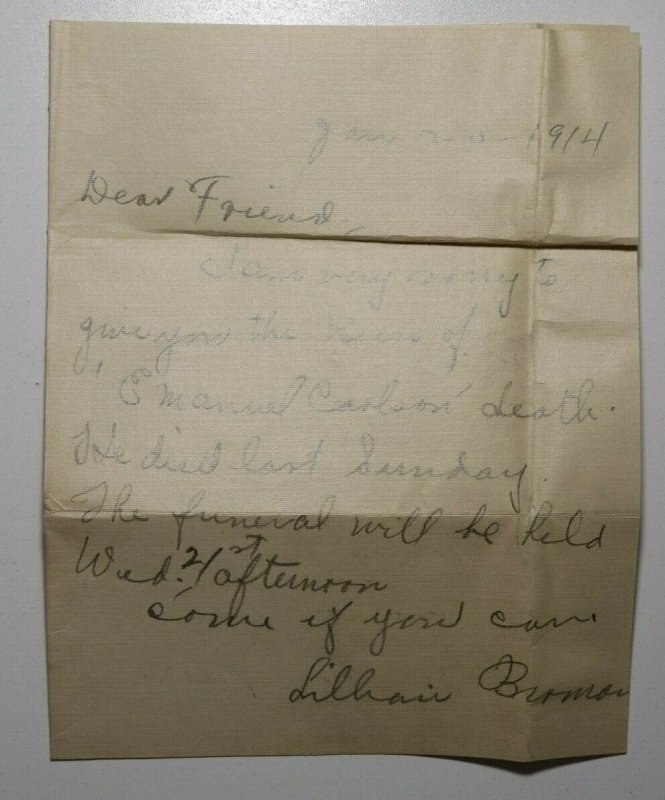 Jan 20-1914
Dear Friend,
I am very sorry to
give you the news of
"Emanuel Carlson" death.
He died last Sunday.
The funeral will be held
Wed. 21st afternoon
come if you can
Lillian Broman